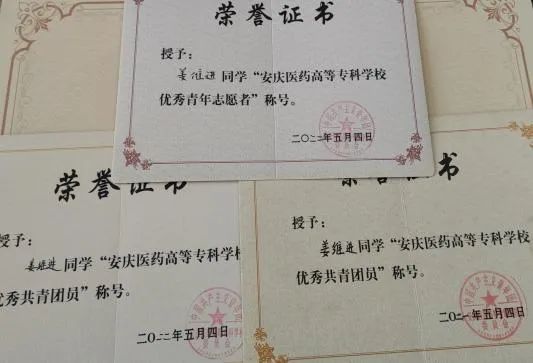 荣誉证书
授予：
姜维进同学“安庆医药高等专科学校
优秀青年志愿者”称号。
二〇二二年五月四日
荣誉证书
授予：
姜维进同学“安庆医药高等专科学校
优秀共青团员”称号。
二〇二二年五月四日
荣誉证书
授予：
姜维进同学“安庆医药高等专科学校
优秀共青团员”称号。
二〇二一年五月四日